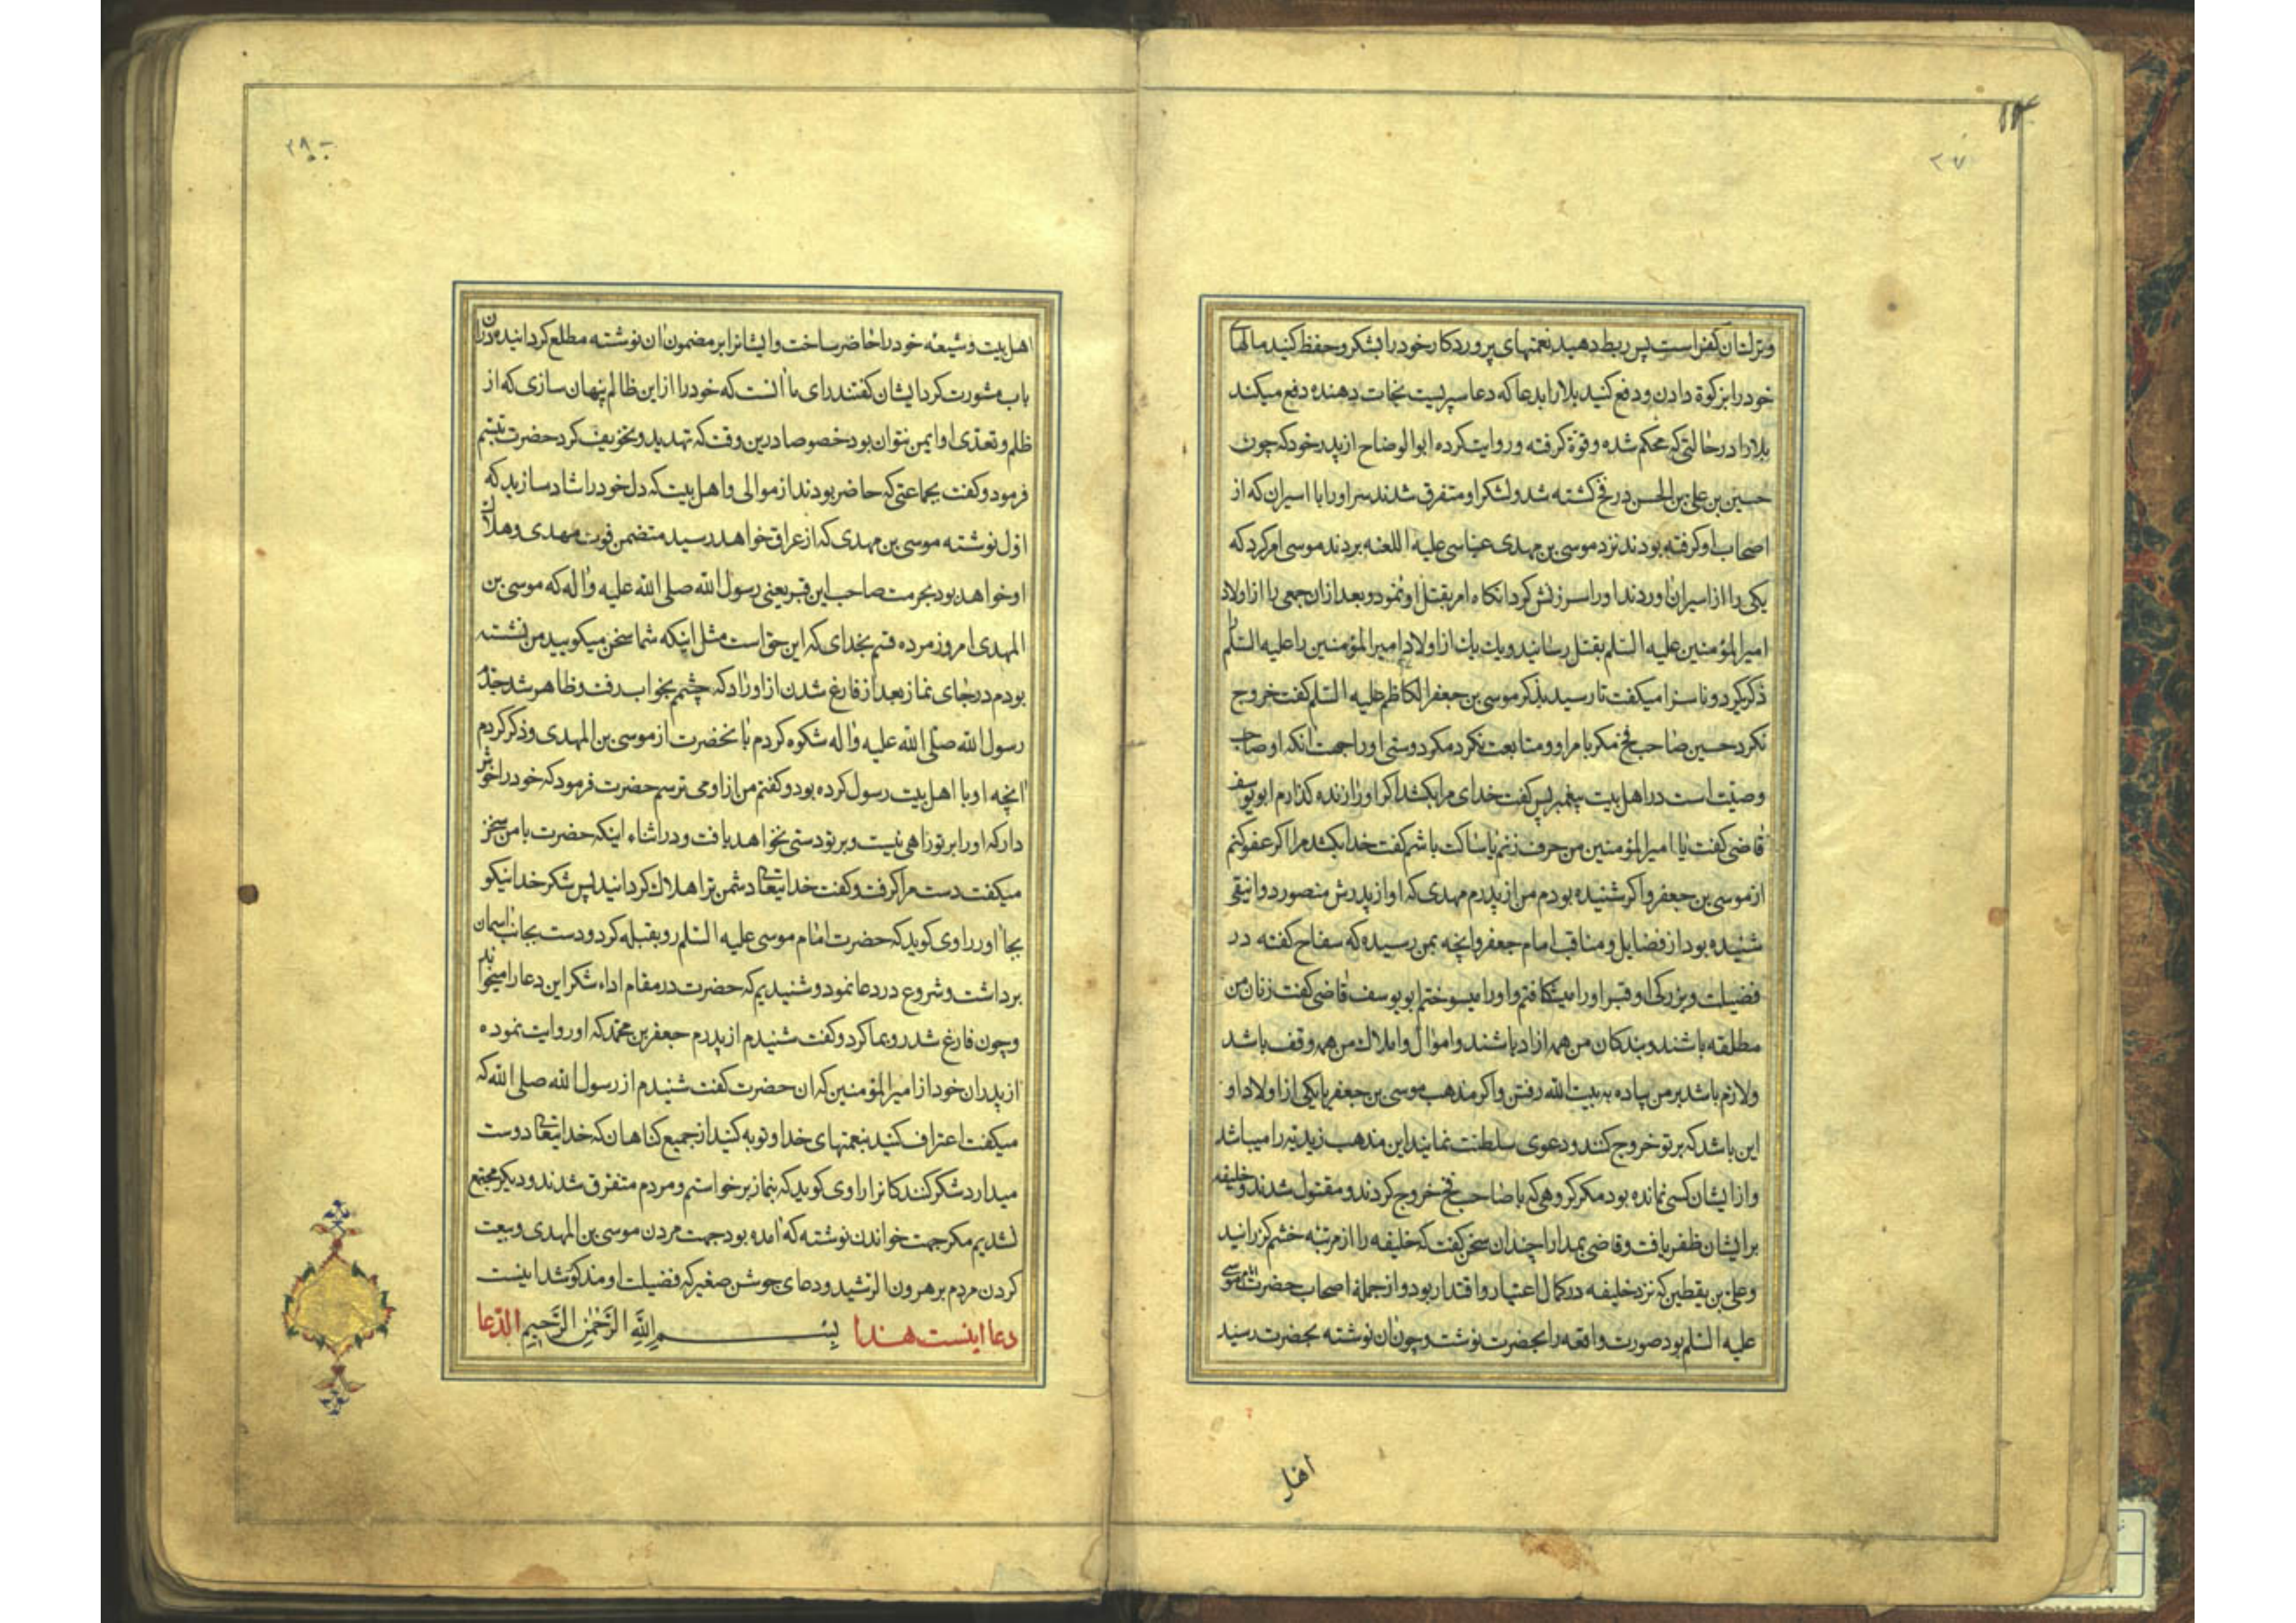 ۱۴
۲۷
وترك ان كفر است پس ربط دهيد نعمتهاى پروردكار خود را بشكر و حفظ كنيد مالهاى
خود را بزكوة دادن و دفع كنيد بلا را بدعا كه دعا سپريست نجات دهنده دفع ميكند
بلا را در حالتى كه محكم شده و قوة كرفته و روايت كرده ابو الوضاح از پدر خود كه چون
حسين بن على بن الحسن در فخ كشته شد و لشكر او متفرق شدند سر او را با اسيران كه از
اصحاب او كرفته بودند نزد موسى بن مهدى عباسى عليه اللعنه بردند موسى امر كرد كه
يكى را از اسيران اوردند او را سرزنش كرد انكاه امر بقتل او نمود و بعد ازان جمعى را از اولاد
امير المؤمنين عليه السلم بقتل رسانيد و يك يك از اولاد امير المؤمنين را عليه السلم
ذكر ميكرد و ناسزا ميكفت تا رسيد بذكر موسى بن جعفر الكاظم عليه السلم كفت خروج
نكرد حسين صاحب فخ مكر بامر او و متابعت نكرد مكر دوستى او را جهت انكه او صاحب
وصيّت است در اهل بيت پيغمبر پس كفت خداى مرا بكشد اكر او را زنده كذارم ابو يوسف
قاضى كفت يا امير المؤمنين من حرف زنم يا ساكت باشم كفت خدا بكشد مرا اكر عفو كنم
از موسى بن جعفر و اكر شنيده بودم من از پدرم مهدى كه او از پدرش منصور دوانيقى
شنيده بود از فضايل و مناقب امام جعفر وانچه بمن رسيده كه سفاح كفته در
فضيلت و بزركى او قبر او را ميشكافتم و او را ميسوختم ابو يوسف قاضى كفت زنان من
مطلقه باشند و بندكان من همه ازاد باشند و اموال و املاك من همه وقف باشد
ولازم باشد بر من پياده به بيت الله رفتن و اكر مذهب موسى بن جعفر يا يكى از اولاد او
اين باشد كه بر تو خروج كنند و دعوى سلطنت نمايند اين مذهب زيديّه را ميباشد
و از ايشان كسى نمانده بود مكر كروهى كه با صاحب فخ خروج كردند و مقتول شدند و خليفه
بر ايشان ظفر يافت و قاضى بمدارا چندان سخن كفت كه خليفه را از مرتبه خشم كزرانيد
و على بن يقطين كه نزد خليفه در كمال اعتبار و اقتدار بود و از جمله اصحاب حضرت امام موسى
عليه السلم بود صورت واقعه را بحضرت نوشت و چون ان نوشته بحضرت رسيد
اهل
۲۸
اهل بيت و شيعه خود را حاضر ساخت و ايشانرا بر مضمون ان نوشته مطلع كردانيد و در ان
باب مشورت كرد ايشان كفتند راى ما انست كه خود را از اين ظالم پنهان سازى كه از
ظلم و تعدّى او ايمن نتوان بود خصوصا درين وقت كه تهديد و تخويف كرد حضرت تبسّم
فرمود و كفت بجماعتى كه حاضر بودند از موالى و اهل بيت كه دل خود را شاد سازيد كه
اوّل نوشته موسى بن مهدى كه از عراق خواهد رسيد متضمن فوت مهدى و هلاك
او خواهد بود بحرمت صاحب اين قبر يعنى رسول الله صلى الله عليه واله كه موسى بن
المهدى امروز مرده قسم بخداى كه اين حق است مثل اينكه شما سخن ميكوييد من نشسته
بودم در جاى نماز بعد از فارغ شدن از اوراد كه چشم بخواب رفت و ظاهر شد جدم
رسول الله صلّى الله عليه واله شكوه كردم بانحضرت از موسى بن المهدى و ذكر كردم
انچه او با اهل بيت رسول كرده بود و كفتم من از او مى ترسم حضرت فرمود كه خود را خوش
دار كه او را بر تو راهى نيست و بر تو دستى نخواهد يافت و در اثناء اينكه حضرت با من سخن
ميكفت دست مرا كرفت و كفت خدايتعالى دشمن ترا هلاك كردانيد پس شكر خدا نيكو
بجا اور راوى كويد كه حضرت امام موسى عليه السلم رو بقبله كرد و دست بجانب اسمان
برداشت و شروع در دعا نمود و شنيديم كه حضرت در مقام اداء شكر اين دعا را ميخواند
و چون فارغ شد رو بما كرد و كفت شنيدم از پدرم جعفر بن محمّد كه او روايت نموده
از پدران خود از امير المؤمنين كه ان حضرت كفت شنيدم از رسول الله صلى الله كه
ميكفت اعتراف كنيد بنعمتهاى خدا و توبه كنيد از جميع كناهان كه خدايتعالى دوست
ميدارد شكر كنندكانرا راوى كويد كه بنماز برخواستيم و مردم متفرق شدند و ديكر مجتمع
نشديم مكر جهت خواندن نوشته كه امده بود جهت مردن موسى بن المهدى و بيعت
كردن مردم بر هرون الرّشيد و دعاى جوشن صغير كه فضيلت او مذكور شد اينست
دعا اينست هذا بِسْمِ اللَّهِ الرَّحْمٰنِ الرَّحِيمِ الدّعا